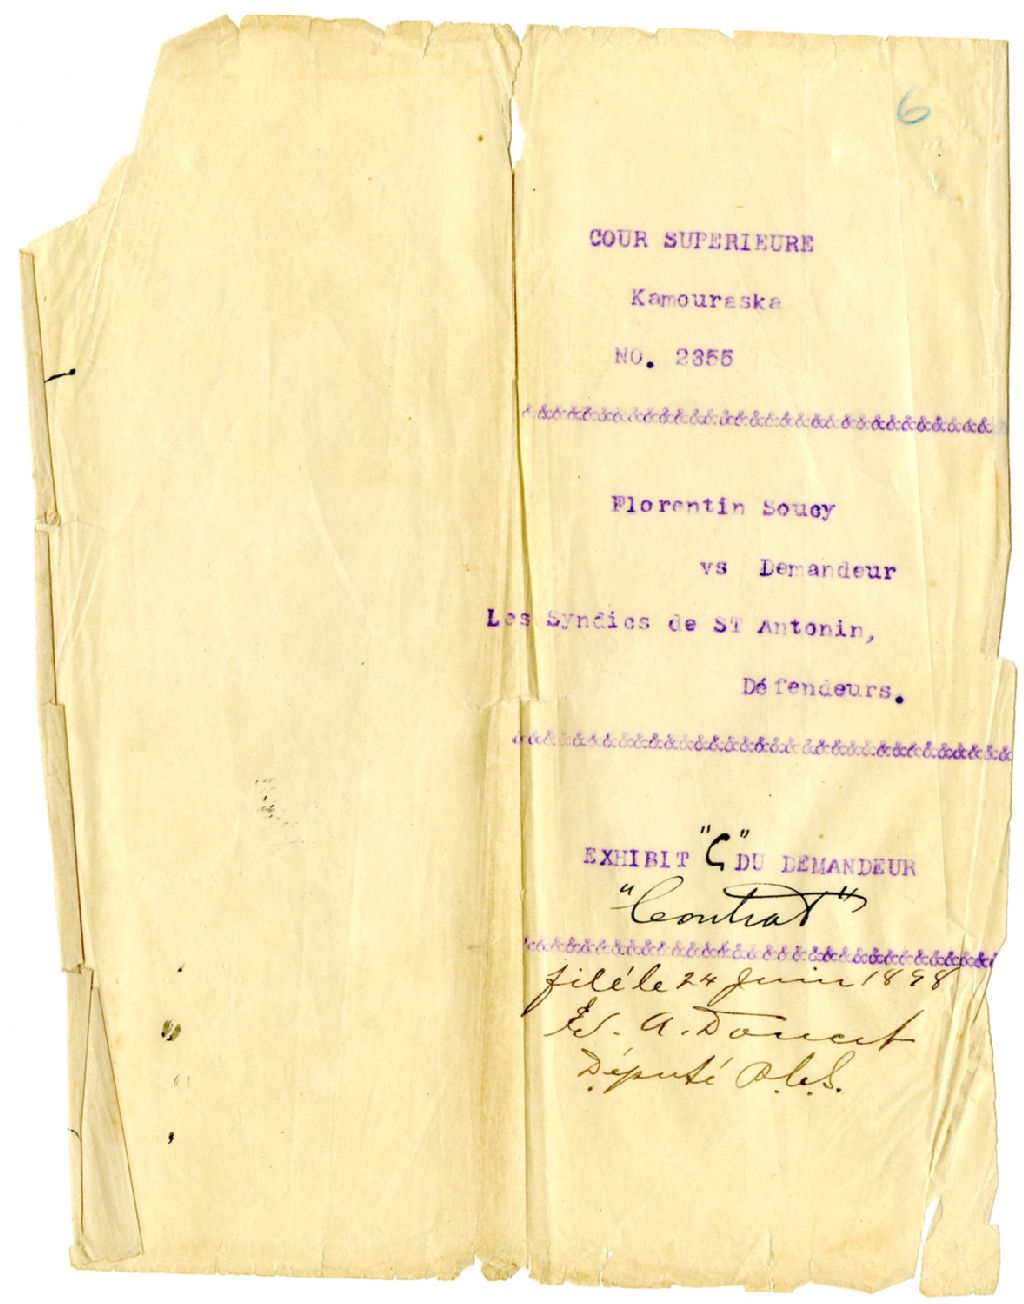 6
COUR SUPERIEURE
Kamouraska
NO. 2355
&&&&&&&&&&&&&&&&&&&&&&&&&&&&&&&
Florentin Soucy
vs Demandeur
Les Syndics de ST Antonin,
Défendeurs.
&&&&&&&&&&&&&&&&&&&&&&&&&&&&&&&&&
EXHIBIT "C" DU DEMANDEUR
"Contrat"
&&&&&&&&&&&&&&&&&&&&&&&&&&&&&&&
filé le 24 Juin 1898
A. Doucet
Député P.C.S.